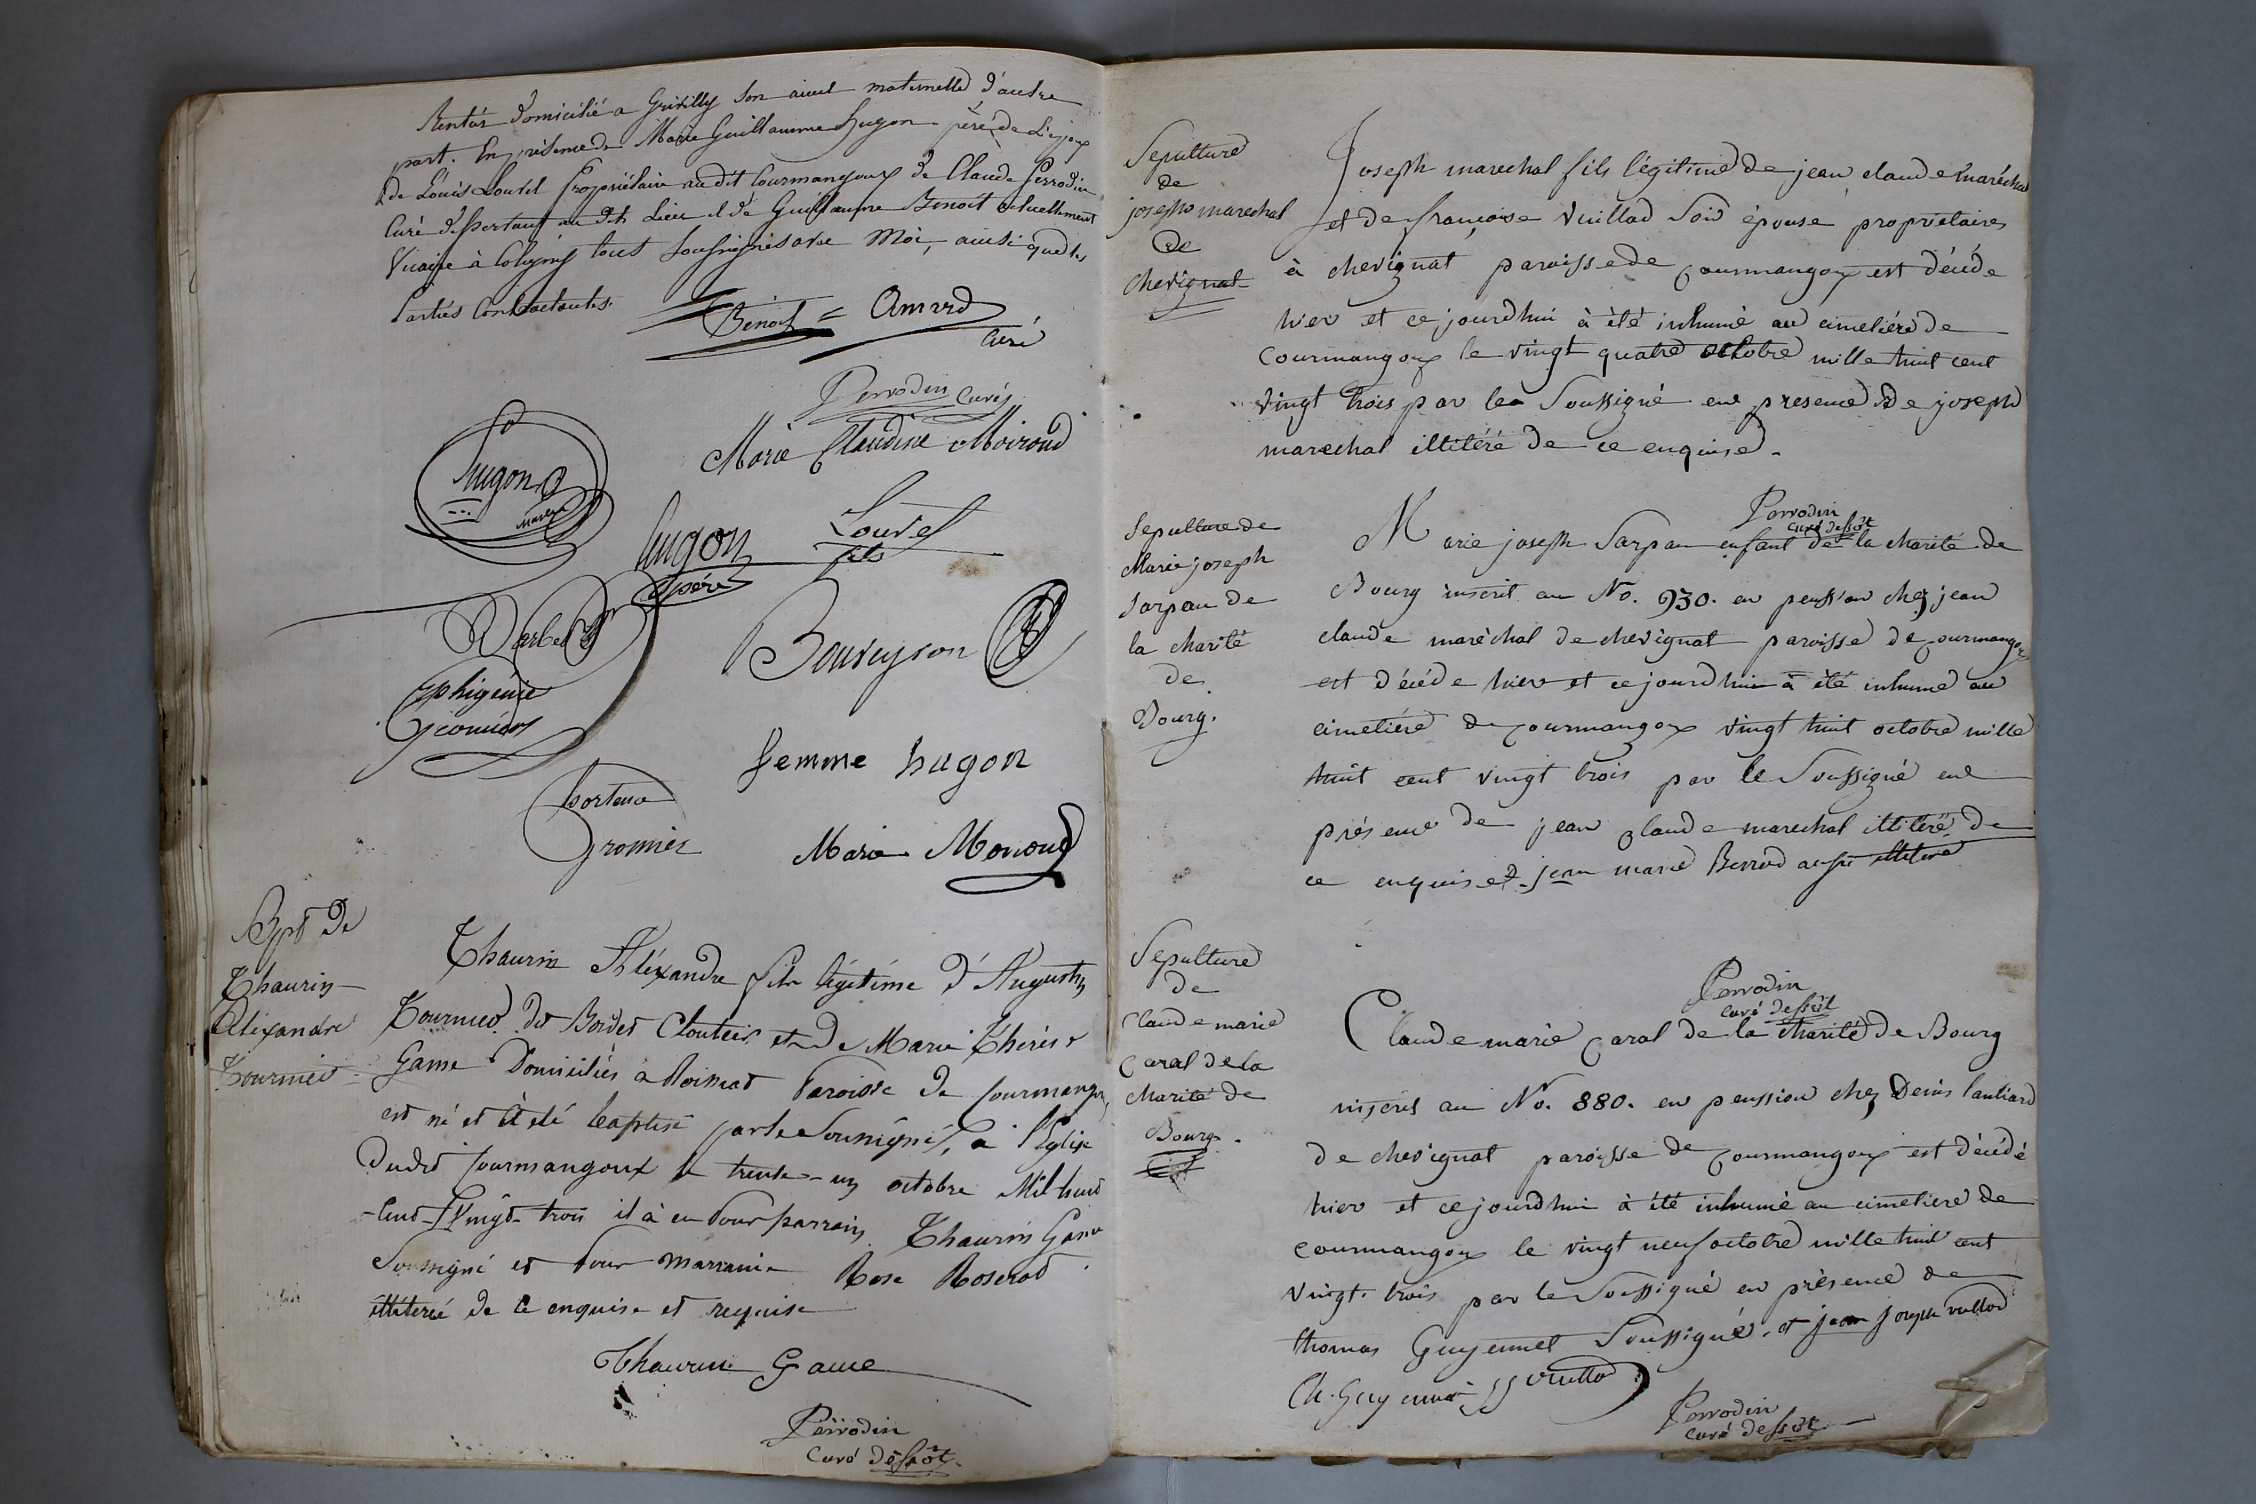 Rentier domicilié a Grivilly son aieul maternelle d'autre
part. En présence de Marie Guillaume hugon père de
de Louis Louvel Propriétaire audit Courmangoux de Claude Perrodin
Curé desservant au dit Lieu et de Guillaume Benoit actuellement
Vicaire à Coligny tous soussignés avec Moi, ainsi que les
Parties Contractantes.
Benoit = Amard
Curé
Perrodin Curé
Marie Claudine Moiroud
hugon
hugon
père
Louvel
fils
Iphigenie
Bouveyron
femme hugon
hortense
Gromier
Marie Monoud
Bpt De
Thaurin
Alexandre
Tournier
Thaurin Aléxandre fils légitime d'Augustin
Tournier dit Bordet Cloutier et de Marie Thérèse
Game Domiciliés a Roissiat Paroisse de Courmangoux
est né et à été baptisé par le Soussigné, à l'Eglise
dudit Courmangoux le trente-un octobre Mil huit
-Cent-Vingt-trois il à eu Pour parrain Thaurin Game
Soussigné et Pour Marraine Rose Roserat
illiterée de ce enquise et requise
Thaurin Game
Perrodin
Curé dessert.
Sepulture
de
joseph marechal
De
Chevignat
Joseph marechal fils légitime de jean claude maréchal
et de françoise Vuillod Son épouse propriétaires
à chevignat paroisse de Courmangoux est décédé
hier et ce jourdhui à été inhumé au cimetiére de
Courmangoux le vingt quatre octobre mille huit cent
vingt trois par le Soussigné en presence de joseph
marechal illitéré de ce enquised.
Perrodin
curé dessert
Sepulture de
Marie joseph
Sarpau de
la charité
de
Bourg.
Marie joseph Sarpau enfant de la charité de
Bourg inscrit au No. 930. en pension chez jean
claude maréchal de chevignat paroisse de Courmangoux
est décédé hier et ce jourdhui à été inhumé au
cimetiére de Courmangoux vingt huit octobre mille
huit cent vingt trois par le Soussigné en
présence de jean claude marechal illitéré de
ce enquis et jean marie Berrod aussi illitéré
Perrodin
curé dessert
Sepulture
de
Claude marie
Caral de la
charité de
Bourg.
Claude marie Caral de la charité de Bourg
inscrit au No. 880. en pension chez Denis
de chevignat paroisse de Courmangoux est décédé
hier et ce jourdhui à été inhumé au cimetiere de
Courmangoux le vingt neuf octobre mille huit cent
vingt-trois par le Soussigné en présence de
thomas Guyennet Soussigné et jean joseph vuillod
Th. Guyennet JJ vuillod
Perrodin
curé dessert